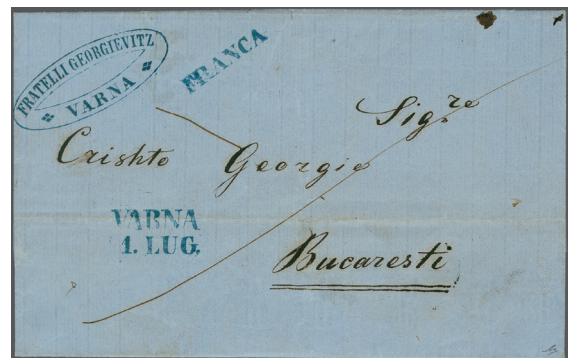 FRATELLI GEORGIEVITZ
VARNA
FRANCA
Sig.re
Crishto Georgio
VARNA
1. LUG.
Bucaresti